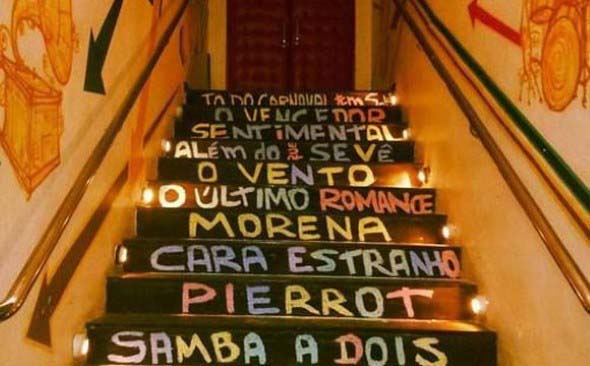 TODO CARNAVAL TEM SEU
O VENCEDOR
SENTIMENTAL
ALÉM DO QUE SE VÊ
O VENTO
O ÚLTIMO ROMANCE
MORENA
CARA ESTRANHO
PIERROT
SAMBA A DOIS